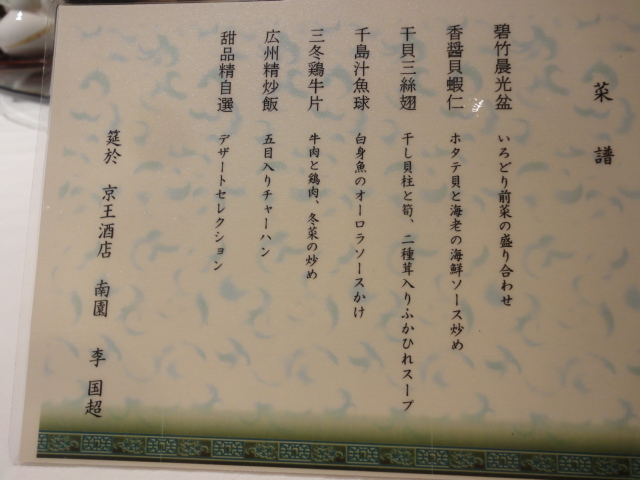 菜 譜
碧竹晨光盆 いろどり前菜の盛り合わせ
香醤貝蝦仁 ホタテ貝と海老の海鮮ソース炒め
干貝三絲翅 干し貝柱と筍、二種茸入りふかひれスープ
千島汁魚球 白身魚のオーロラソースかけ
三冬鶏牛片 牛肉と鶏肉、冬菜の炒め
広州精炒飯 五目入りチャーハン
甜品精自選 デザートセレクション
筵於 京王酒店 南園 李 国超